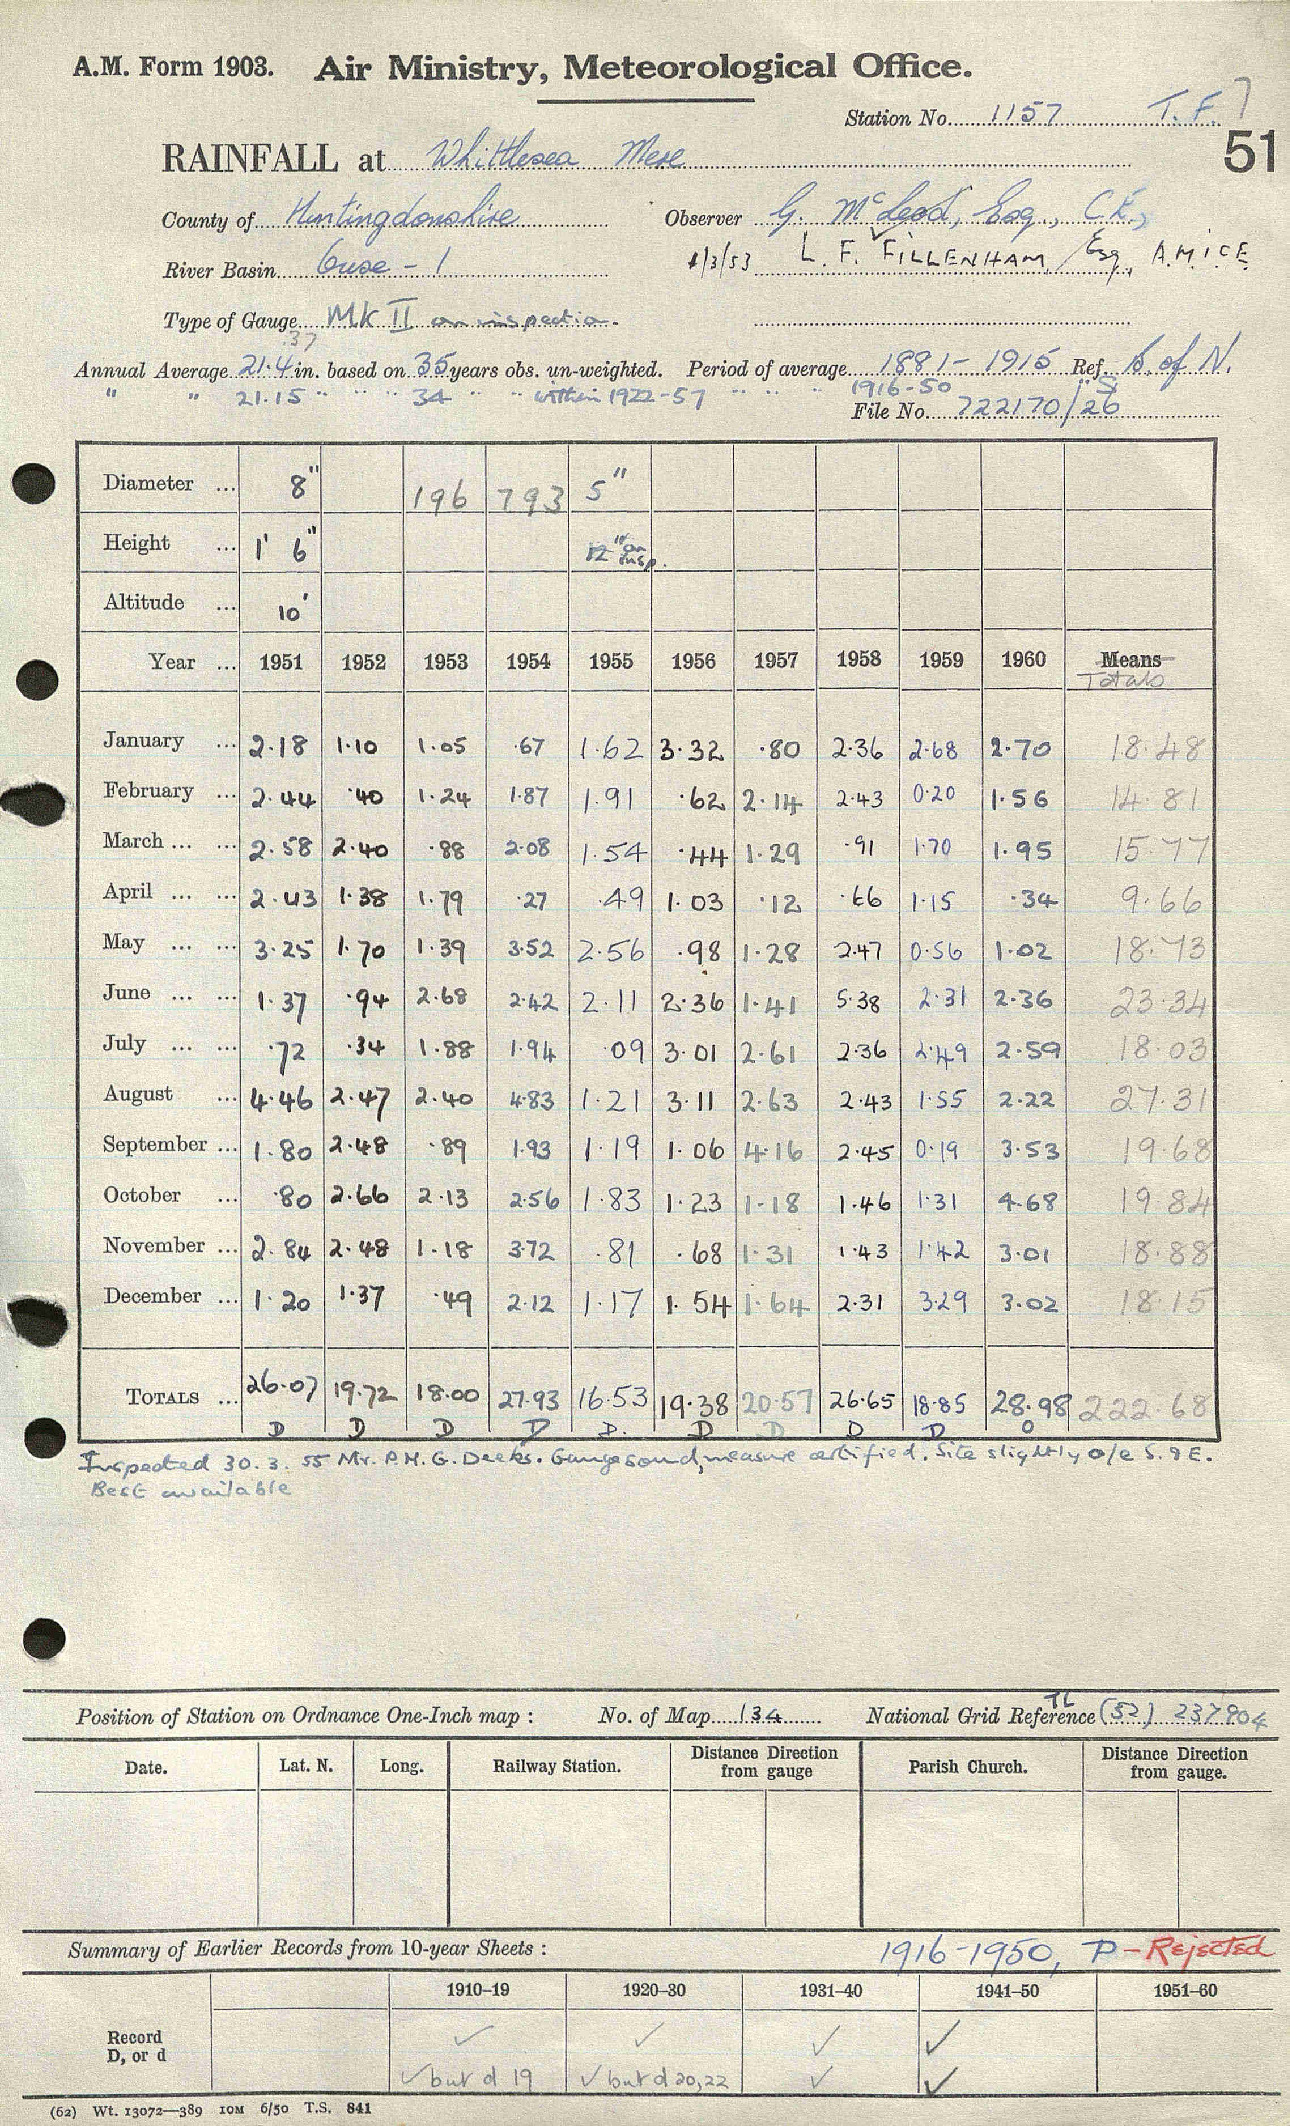 A.M. Form 1903. Air Ministry, Meteorological Office.
Station No. 1157 T.F. 7
51
RAINFALL at Whittlesea Mere
County of Huntingdonshire Observer G. McLeod, Esq., C.E.,
River Basin Ouse - 1 1/3/53 L. F. FILLENHAM, Esq., A.M.I.C.E.
Type of Gauge MK II on inspection.
.37
Annual Average 21.4 in. based on 35 years obs. un-weighted. Period of average 1881 - 1915 Ref. B. of N.
" " 21.15 " " " 34 " " within 1922-57 " " " 1916-50 "
File No. 722170/26
Diameter ... 8" 196 793 5"
Height ... 1' 6" 12" on insp.
Altitude ... 10'
Year ... 1951 1952 1953 1954 1955 1956 1957 1958 1959 1960 Means
Totals
January ... 2.18 1.10 1.05 .67 1.62 3.32 .80 2.36 2.68 2.70 18.48
February ... 2.44 .40 1.24 1.87 1.91 .62 2.14 2.43 0.20 1.56 14.81
March ... ... 2.58 2.40 .88 2.08 1.54 .44 1.29 .91 1.70 1.95 15.77
April ... ... 2.43 1.38 1.79 .27 .49 1.03 .12 .66 1.15 .34 9.66
May ... ... 3.25 1.70 1.39 3.52 2.56 .98 1.28 2.47 0.56 1.02 18.73
June ... ... 1.37 .94 2.68 2.42 2.11 2.36 1.41 5.38 2.31 2.36 23.34
July ... ... .72 .34 1.88 1.94 .09 3.01 2.61 2.36 2.49 2.59 18.03
August ... 4.46 2.47 2.40 4.83 1.21 3.11 2.63 2.43 1.55 2.22 27.31
September ... 1.80 2.48 .89 1.93 1.19 1.06 4.16 2.45 0.19 3.53 19.68
October ... .80 2.66 2.13 2.56 1.83 1.23 1.18 1.46 1.31 4.68 19.84
November ... 2.84 2.48 1.18 3.72 .81 .68 1.31 1.43 1.42 3.01 18.88
December ... 1.20 1.37 .49 2.12 1.17 1.54 1.64 2.31 3.29 3.02 18.15
TOTALS ... 26.07 19.72 18.00 27.93 16.53 19.38 20.57 26.65 18.85 28.98 222.68
D D D D D. D D D D D
Inspected 30.3.55 Mr. P.M.G. Deeks. Gauge sound, measure certified. Site slightly o/e S. & E.
Best available
Position of Station on Ordnance One-Inch map : No. of Map 134 National Grid Reference TL (52) 237904
Date. Lat. N. Long. Railway Station. Distance Direction from gauge Parish Church. Distance Direction from gauge.
Summary of Earlier Records from 10-year Sheets : 1916-1950, P - Rejected
1910–19 1920–30 1931–40 1941–50 1951–60
Record ✓ ✓ ✓ ✓
D, or d ✓ but d 19 ✓ but d 20,22 ✓ ✓
(62) Wt. 13072—389 10M 6/50 T.S. 841